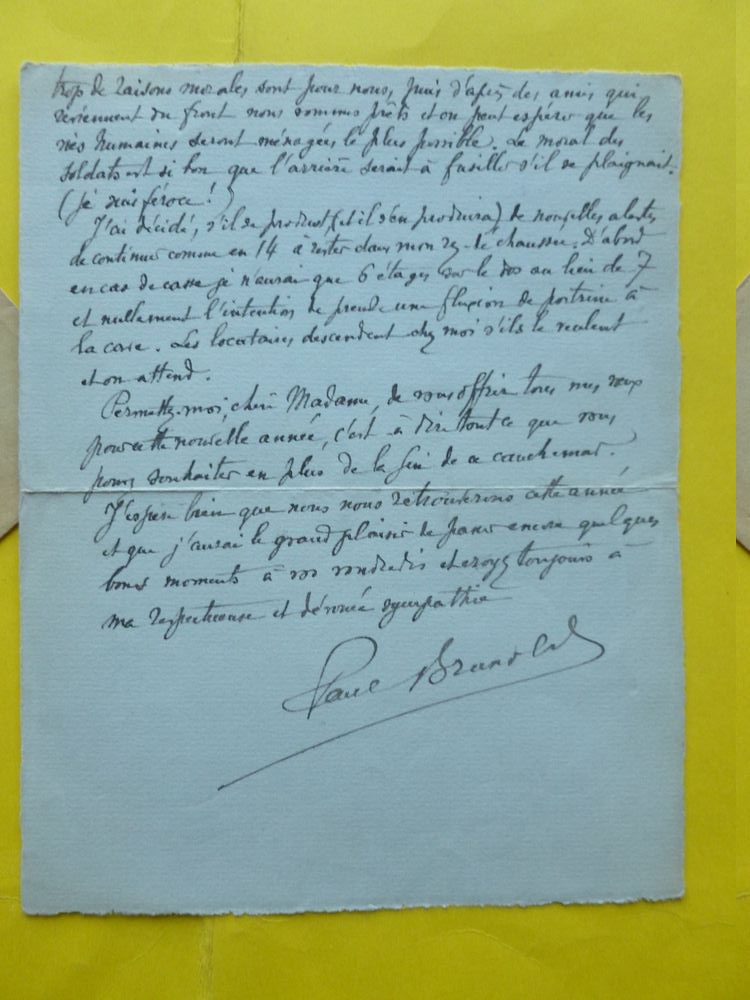 trop de raisons morales sont pour nous, puis d'après des amis qui
reviennent du front nous sommes prêts et on peut espérer que les
vies humaines seront ménagées le plus possible. Le moral des
soldats est si bon que l'arrière serait à fusiller s'il se plaignait.
(je suis féroce!)
J'ai décidé, s'il se produit, (et il s'en produira) de nouvelles alertes
de continuer comme en 14 à rester dans mon rez-de chaussée. D'abord
en cas de casse je n'aurai que 6 étages sur le dos au lieu de 7
et nullement l'intention de prendre une fluxion de poitrine à
la cave. Les locataires descendent chez moi s'ils le veulent
et on attend.
Permettez-moi, chère Madame, de vous offrir tous mes vœux
pour cette nouvelle année, c'est à dire tout ce que vous
pouvez souhaiter en plus de la fin de ce cauchemar.
J'espère bien que nous nous retrouverons cette année
et que j'aurai le grand plaisir de passer encore quelques
bons moments à vos vendredis et croyez toujours à
ma respectueuse et dévouée sympathie
Paul Brunold